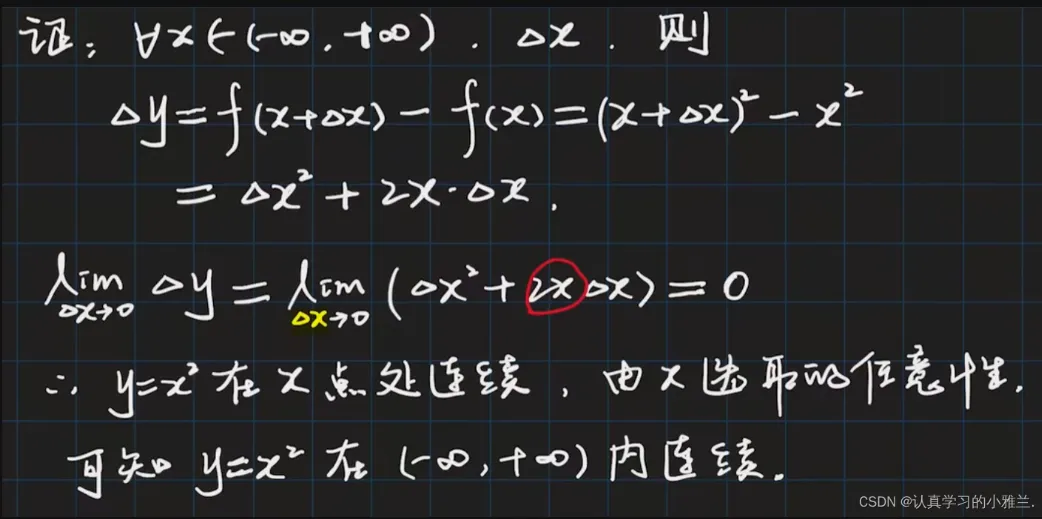 证: ∀x∈(-∞,+∞). Δx. 则
Δy=f(x+Δx)-f(x)=(x+Δx)²-x²
=Δx²+2x·Δx.
lim Δy=lim(Δx²+2xΔx)=0
Δx→0 Δx→0
∴ y=x²在x点处连续,由x选取的任意性.
可知 y=x²在(-∞,+∞)内连续.
CSDN @认真学习的小雅兰.